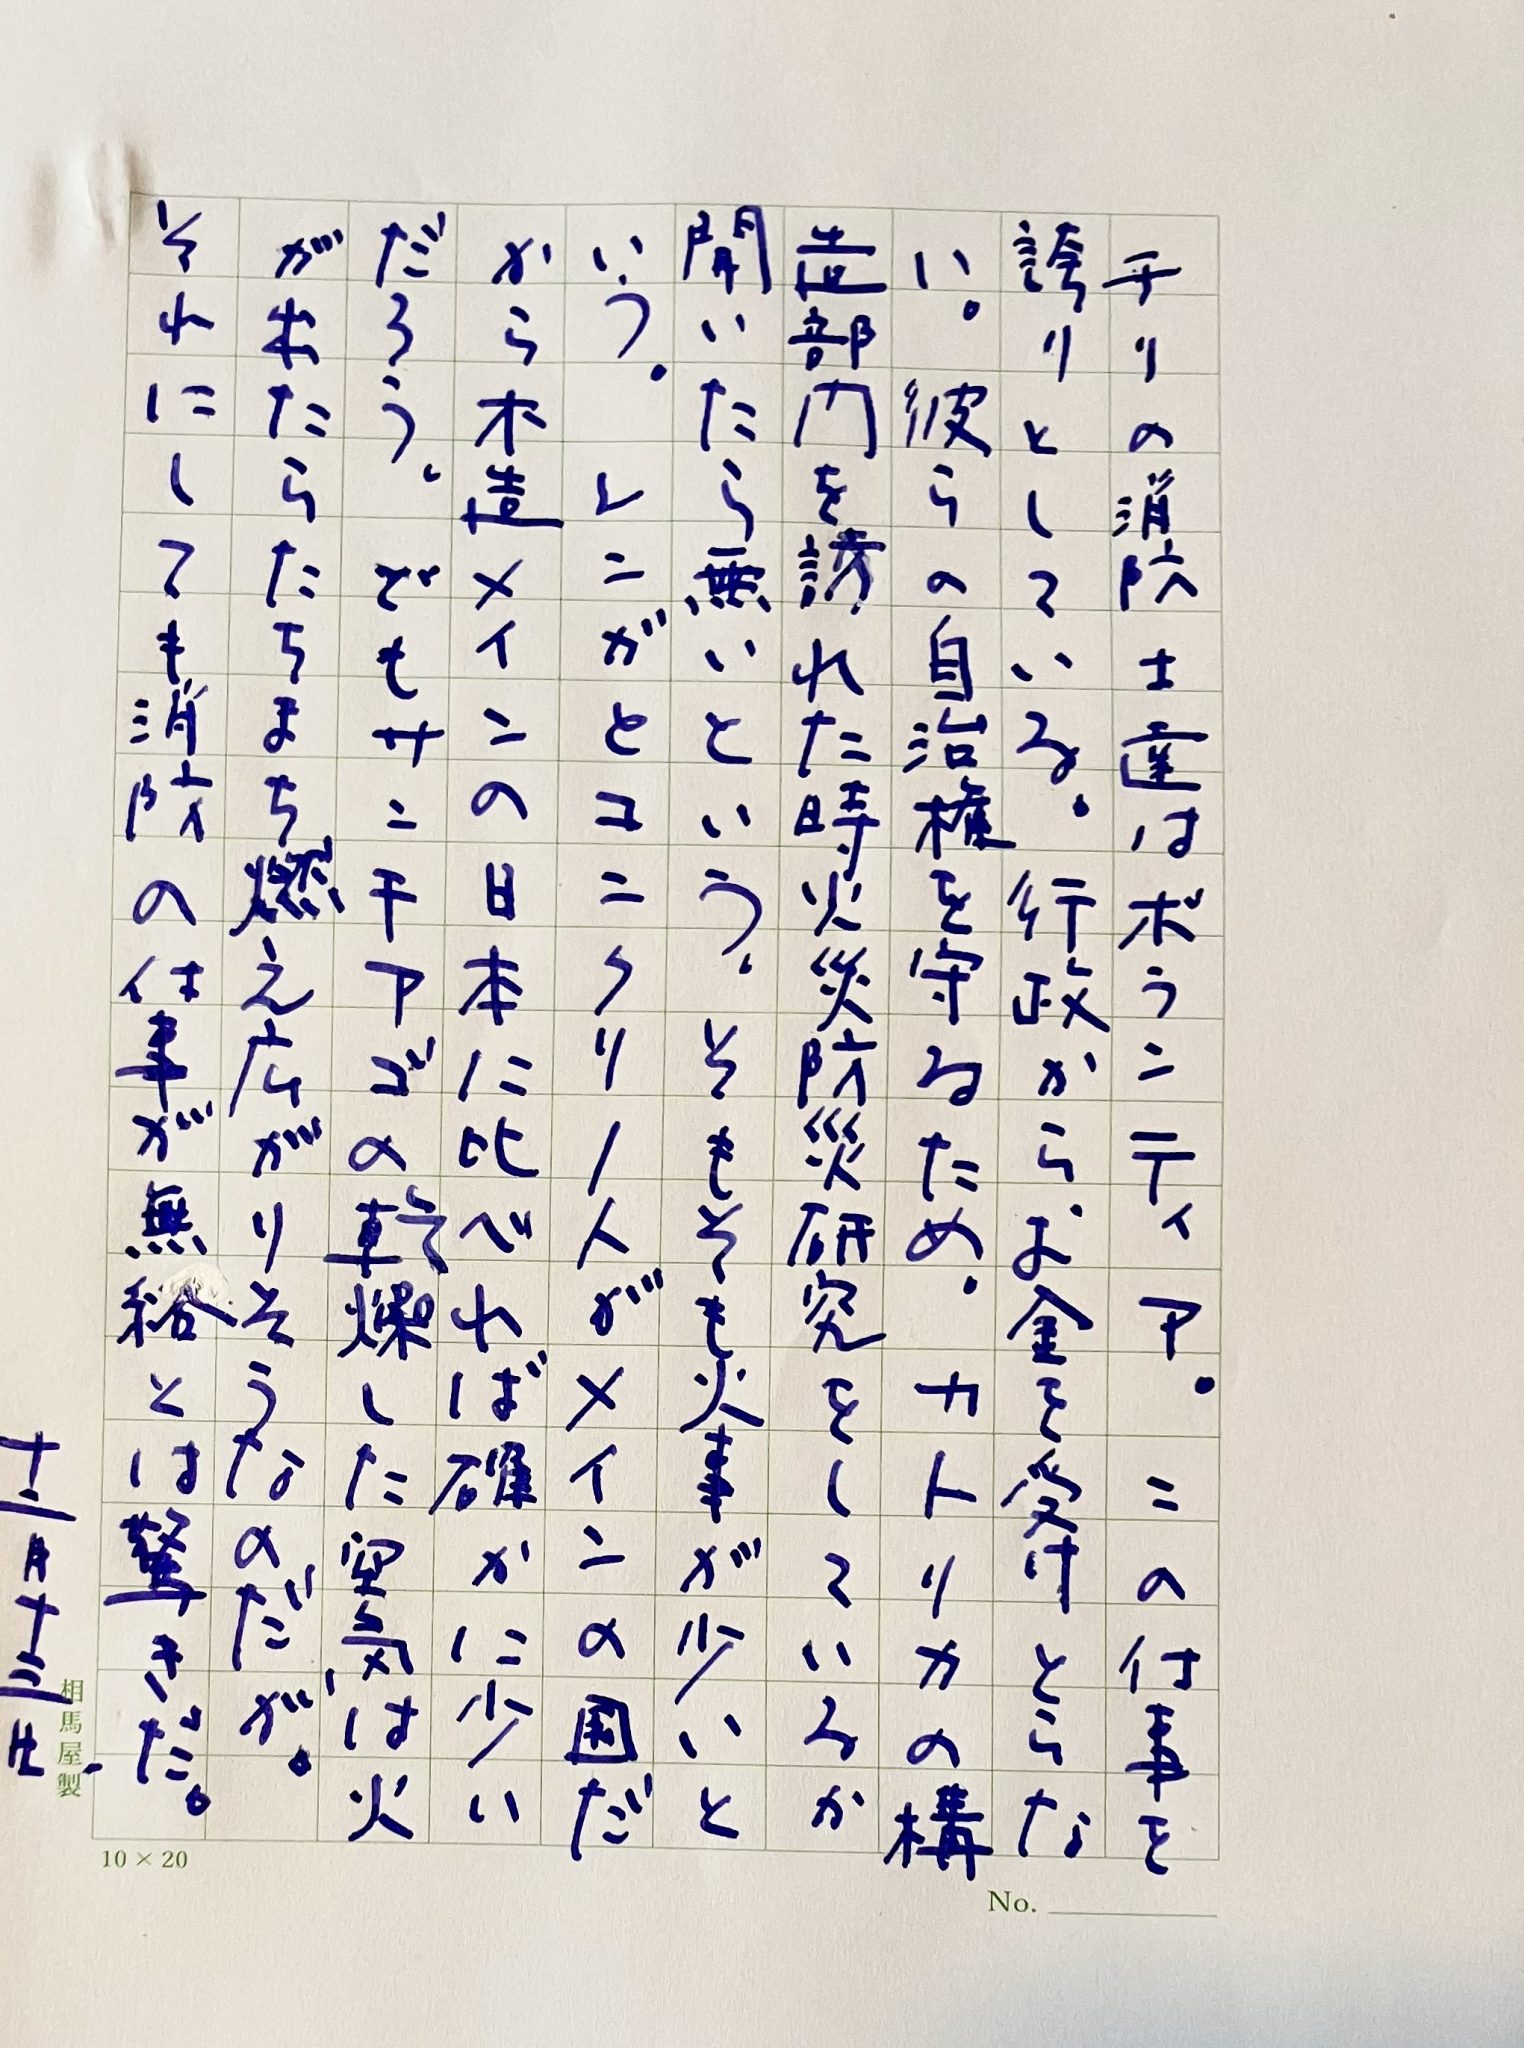 チリの消防士達はボランティア。この仕事を
誇りとしている。行政からお金を受けとらな
い。彼らの自治権を守るため。カトリカの構
造部門を訪れた時火災防災研究をしているか
聞いたら無いという。そもそも火事が少いと
いう。レンガとコンクリートがメインの国だ
から木造メインの日本に比べれば確かに少い
だろう。でもサンチアゴの乾燥した空気は火
が出たらたちまち燃え広がりそうなのだが。
それにしても消防の仕事が無給とは驚きだ。
十二月十三日
相馬屋製
10 × 20
No.